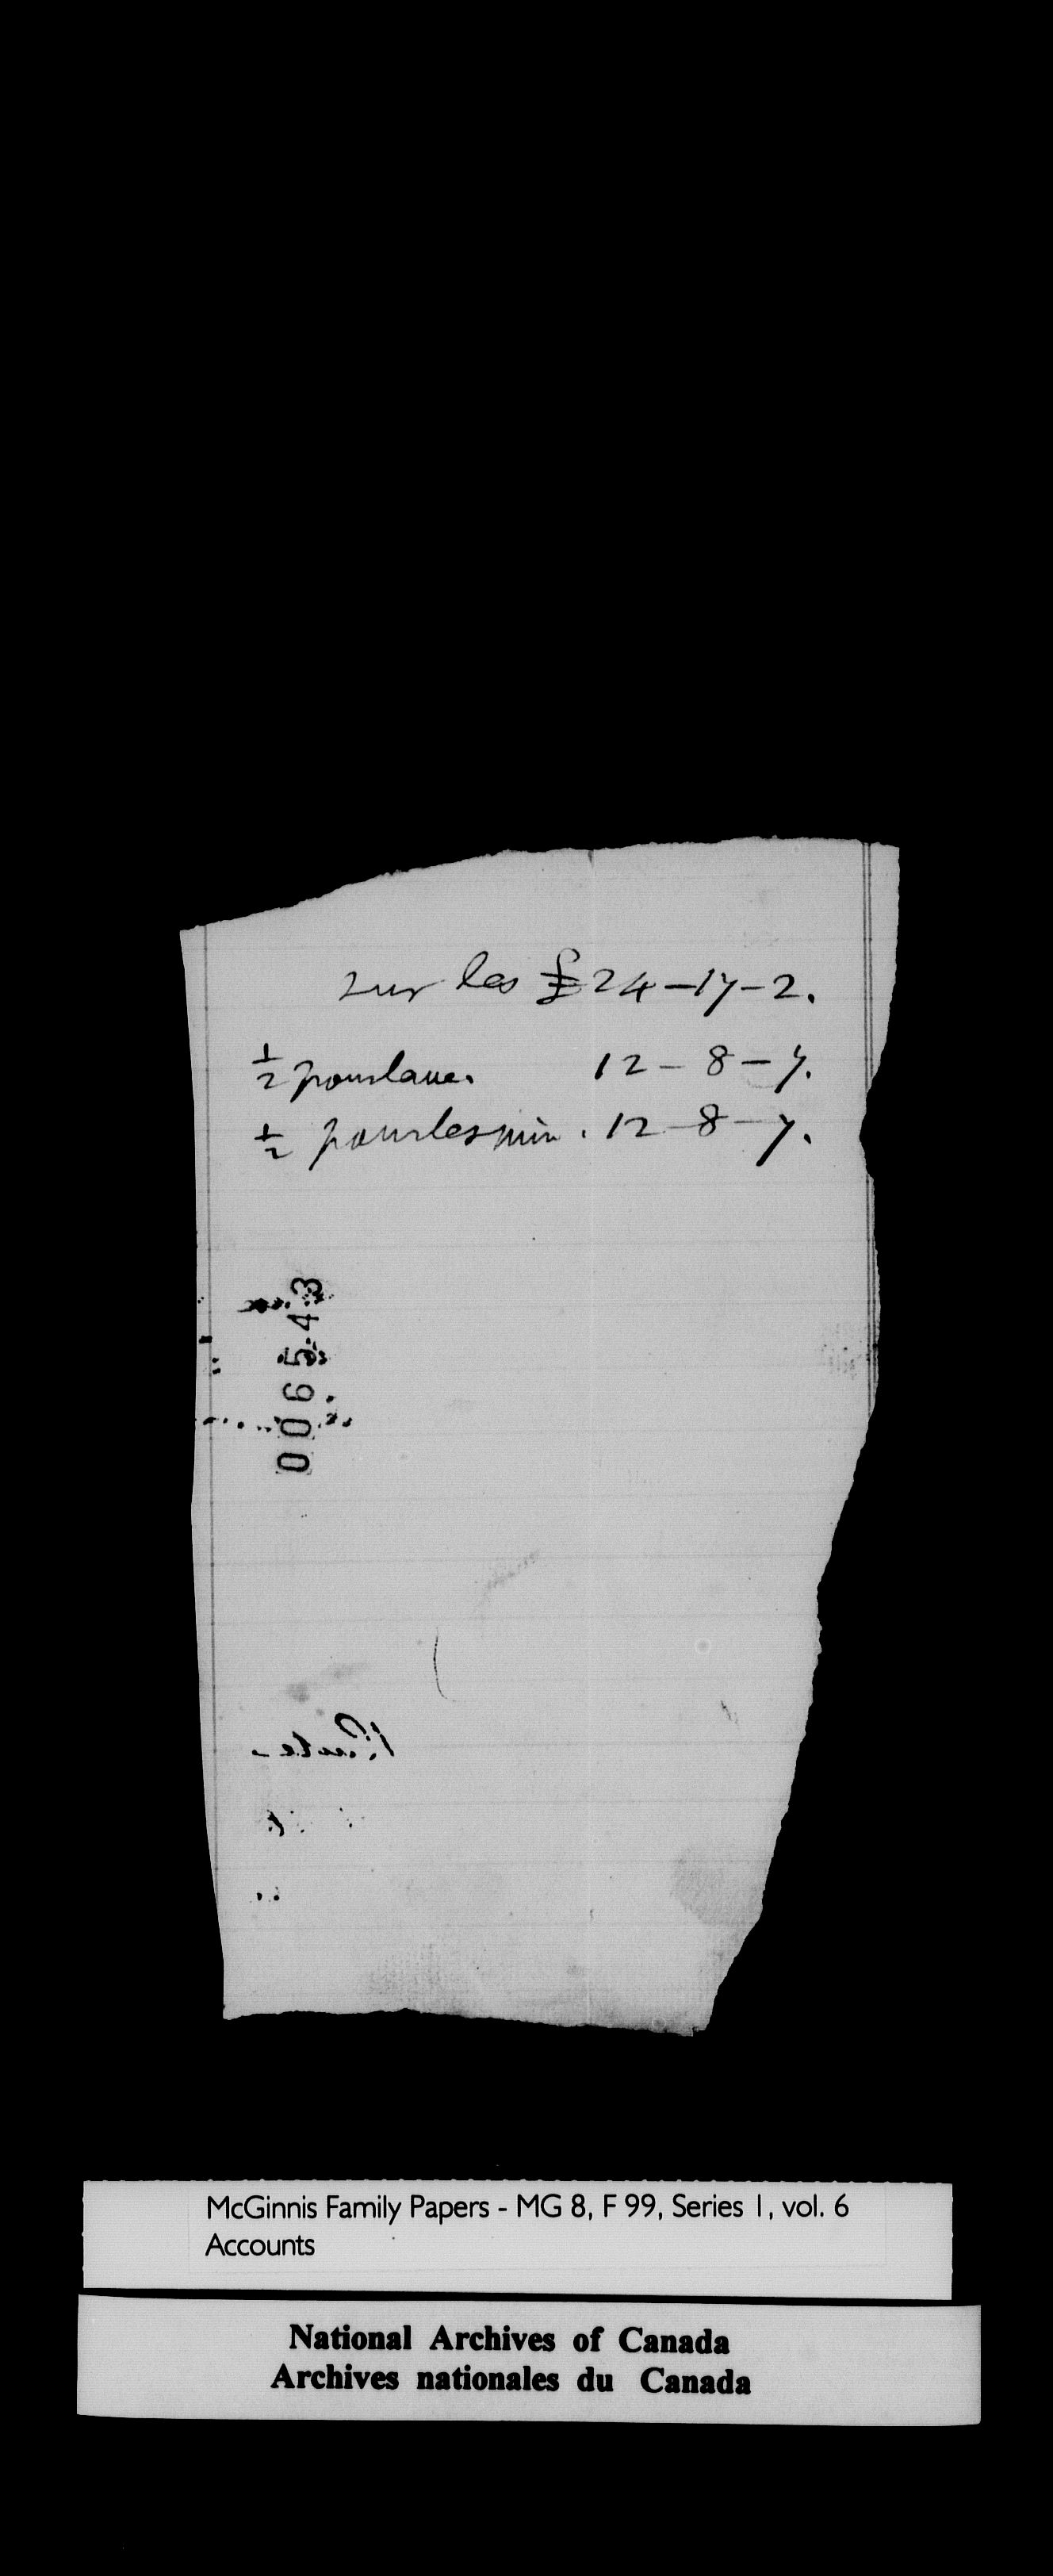 sur les £ 24-17-2.
½ pour la ve. 12-8-7.
½ pour les min. 12-8-7.
006543
McGinnis Family Papers - MG 8, F 99, Series 1, vol. 6
Accounts
National Archives of Canada
Archives nationales du Canada